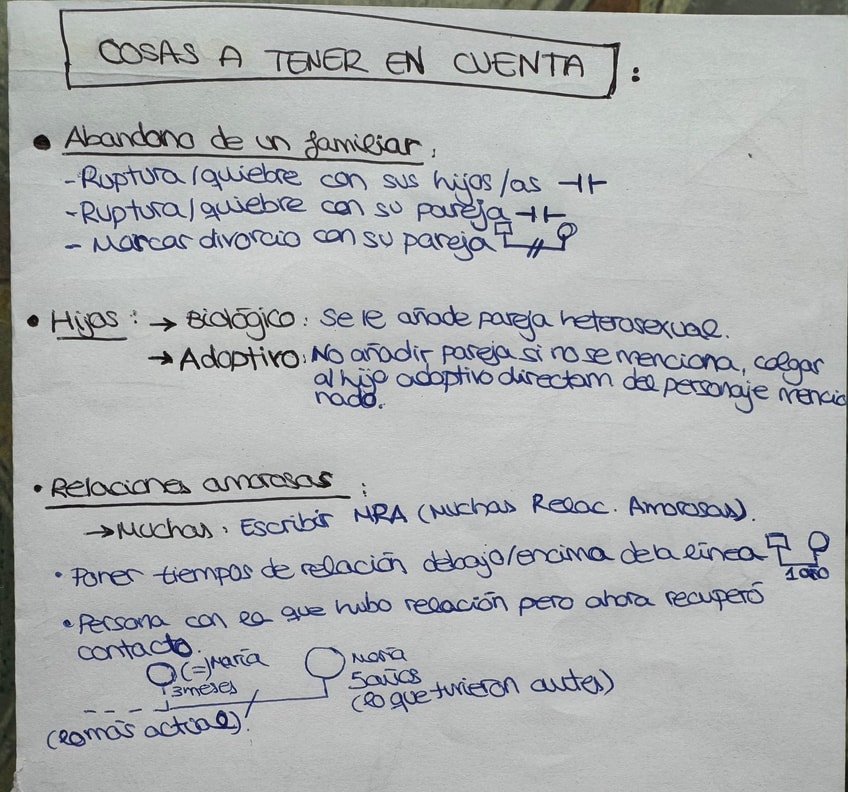 COSAS A TENER EN CUENTA :
• Abandono de un familiar:
-Ruptura/quiebre con sus hijos/as
-Ruptura/quiebre con su pareja
- Marcar divorcio con su pareja
• Hijos: → Biológico: Se le añade pareja heterosexual.
→ Adoptivo: No añadir pareja si no se menciona, colgar
al hijo adoptivo directam del personaje mencio
nado.
• Relaciones amorosas :
→ Muchas: Escribir MRA (Muchas Relac. Amorosas).
• Poner tiempos de relación debajo/encima de la línea
1año
• Persona con la que hubo relación pero ahora recuperó
contacto.
(=) María
3meses
María
5años
(lo que tuvieron antes)
(lo más actual)